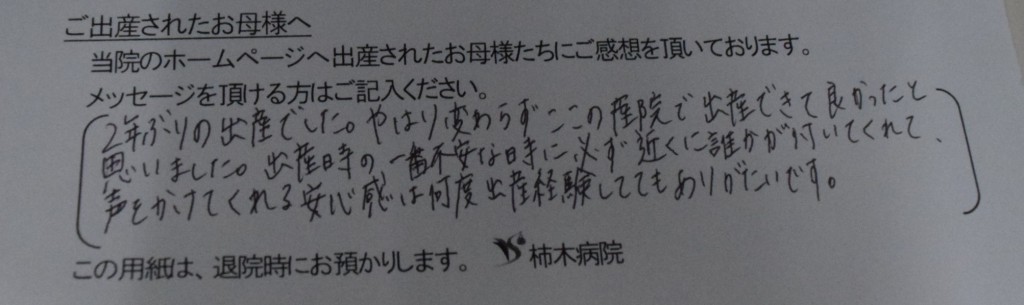 ご出産されたお母様へ
当院のホームページへ出産されたお母様たちにご感想を頂いております。
メッセージを頂ける方はご記入ください。
2年ぶりの出産でした。やはり変わらずここの産院で出産できて良かったと
思いました。出産時の一番不安な時に必ず近くに誰かが付いてくれて、
声をかけてくれる安心感は何度出産経験しててもありがたいです。
この用紙は、退院時にお預かりします。 柿木病院